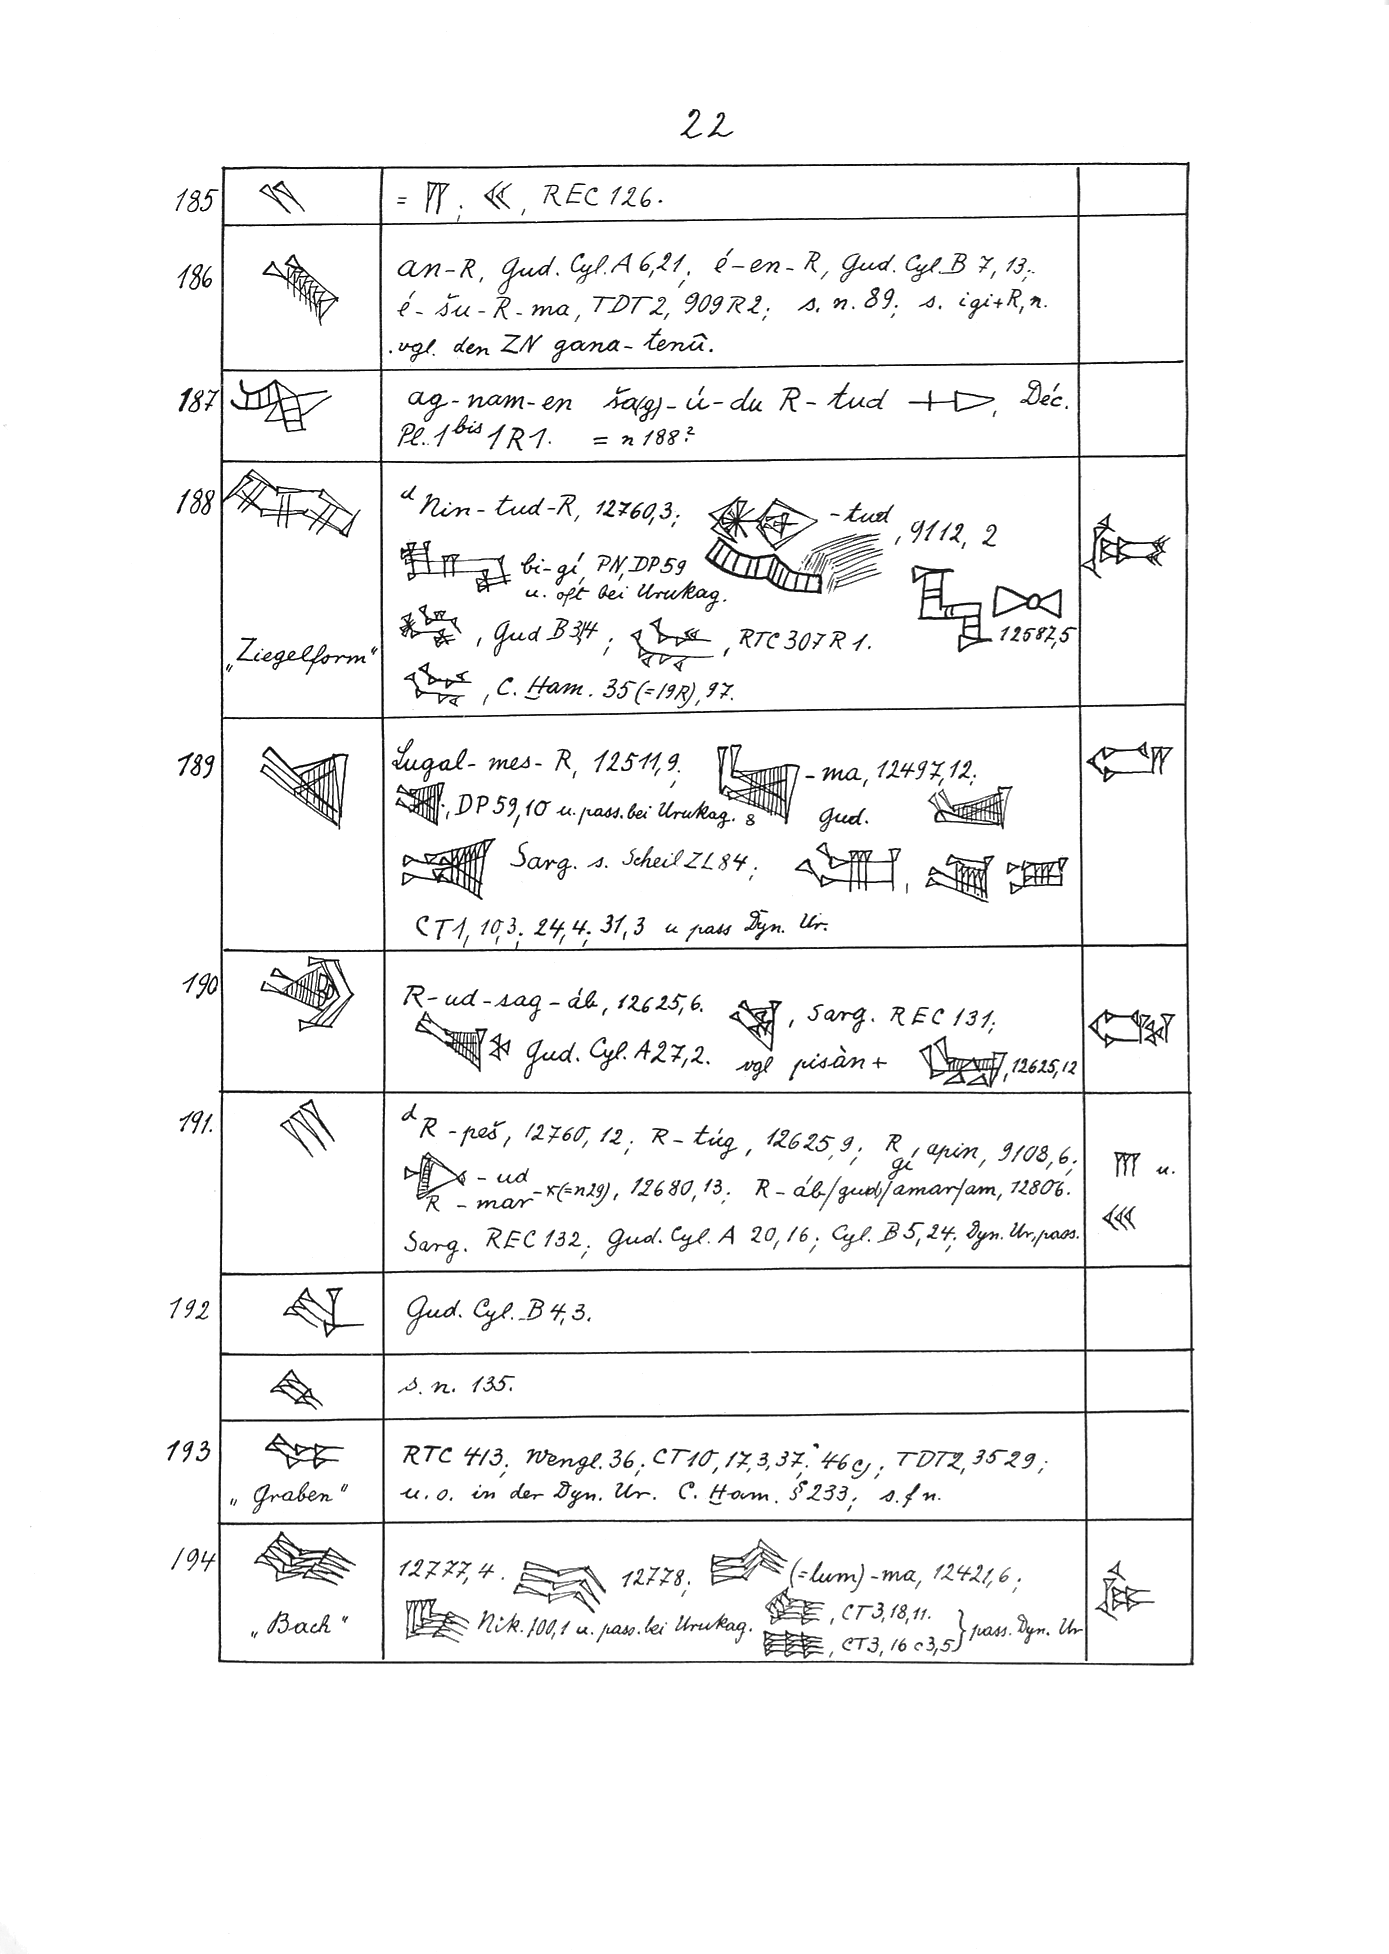 22
185 = ; , REC 126.
186 an-R, Gud. Cyl. A 6,21; é-en-R, Gud. Cyl. B 7, 13;
é-šu-R-ma, TDT 2, 909 R 2; s. n. 89; s. igi+R, n.
vgl. den ZN gana-tenû.
187 ag-nam-en ša(g)-ú-du R-tud , Déc.
Pl. 1 bis 1 R 1. = n 188?
188 d Nin-tud-R, 12760,3; -tud, 9112, 2
bi-gí, PN, DP 59
u. oft bei Urukag.
12587,5
, Gud B 3,4; , RTC 307 R 1.
„Ziegelform“
, C. Ham. 35 (=19R), 97.
189 Lugal-mes-R, 12511,9; -ma, 12497,12;
, DP 59,10 u. pass. bei Urukag. Gud.
Sarg. s. Scheil ZL 84; ,
CT 1, 10,3; 24,4; 31,3 u pass Dyn. Ur.
190 R-ud-sag-áb, 12625,6. , Sarg. REC 131;
Gud. Cyl. A 27,2. vgl pisàn+ , 12625,12
191. d R-peš, 12760,12; R-túg, 12625,9; R gi, apin, 9108,6;
-ud
R-mar (=n29), 12680,13; R-áb/gud/amar/am, 12806.
u.
Sarg. REC 132; Gud. Cyl. A 20,16; Cyl. B 5,24; Dyn. Ur, pass.
192 Gud. Cyl. B 4,3.
s. n. 135.
193 RTC 413; Wengl. 36; CT 10, 17,3,37; 46 c); TDT 2, 3529;
„Graben“ u. o. in der Dyn. Ur. C. Ham. § 233; s. f n.
194 12777,4. 12778; (=lum)-ma, 12421,6;
Nik. 100,1 u. pass. bei Urukag. , CT 3, 18,11.
„Bach“ , CT 3, 16 c 3,5 } pass. Dyn. Ur